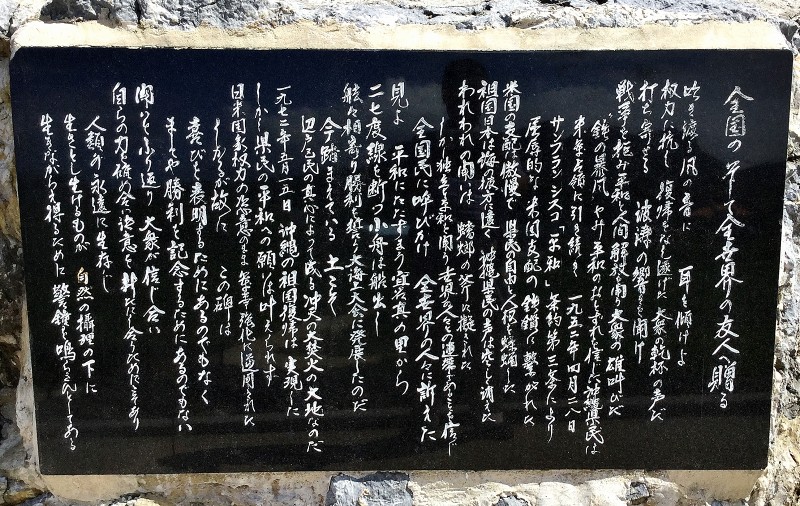 全国の そして全世界の友人へ贈る
吹き渡る風の音に 耳を傾けよ
権力に抗し 復帰をなし遂げた 大衆の乾杯の声だ
打ち寄せる 波濤の響きを聞け
戦争を拒み平和と人間解放を闘う大衆の雄叫びだ
"鉄の暴風"やみ平和のおとずれを信じた沖縄県民は
米軍占領に引き続き 一九五二年四月二八日
サンフランシスコ「平和」条約第三条により
屈辱的な米国支配の鉄鎖に繋がれた
米国の支配は傲慢で 県民の自由と人権を蹂躙した
祖国日本は海の彼方に遠く 沖縄県民の声は空しく消えた
われわれの闘いは 蟷螂の斧に擬された
しかし独立と平和を闘う世界の人々との連帯あることを信じ
全国民に呼びかけ 全世界の人々に訴えた
見よ 平和にたたずまう宜名真の里から
二七度線を断つ小舟は船出し
舷々相寄り勝利を誓う大海上大会に発展したのだ
今踏まえている 土こそ
辺戸区民の真心によって成る沖天の大焚火の大地なのだ
一九七二年五月一五日 沖縄の祖国復帰は実現した
しかし県民の平和への願いは叶えられず
日米国家権力の恣意のまま 軍事強化に逆用された
しかるが故に この碑は
喜びを表明するためにあるのでもなく
ましてや勝利を記念するためにあるのでもない
闘いをふり返り 大衆が信じ合い
自らの力を確め合い決意を新たにし合うためにこそあり
人類が永遠に生存し
生きとし生けるものが 自然の攝理の下に
生きながらえ得るために 警鐘を鳴らさんとしてある